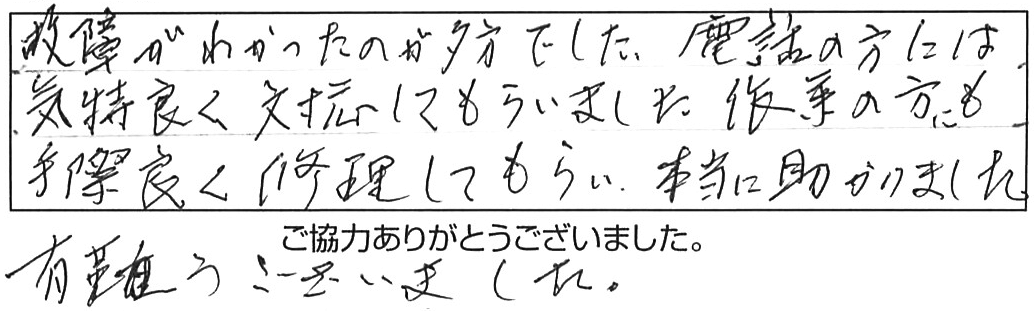 故障がわかったのが夕方でした。電話の方には
気持良く対応してもらいました 作業の方にも
手際良く修理してもらい、本当に助かりました。
ご協力ありがとうございました。
有難うございました。